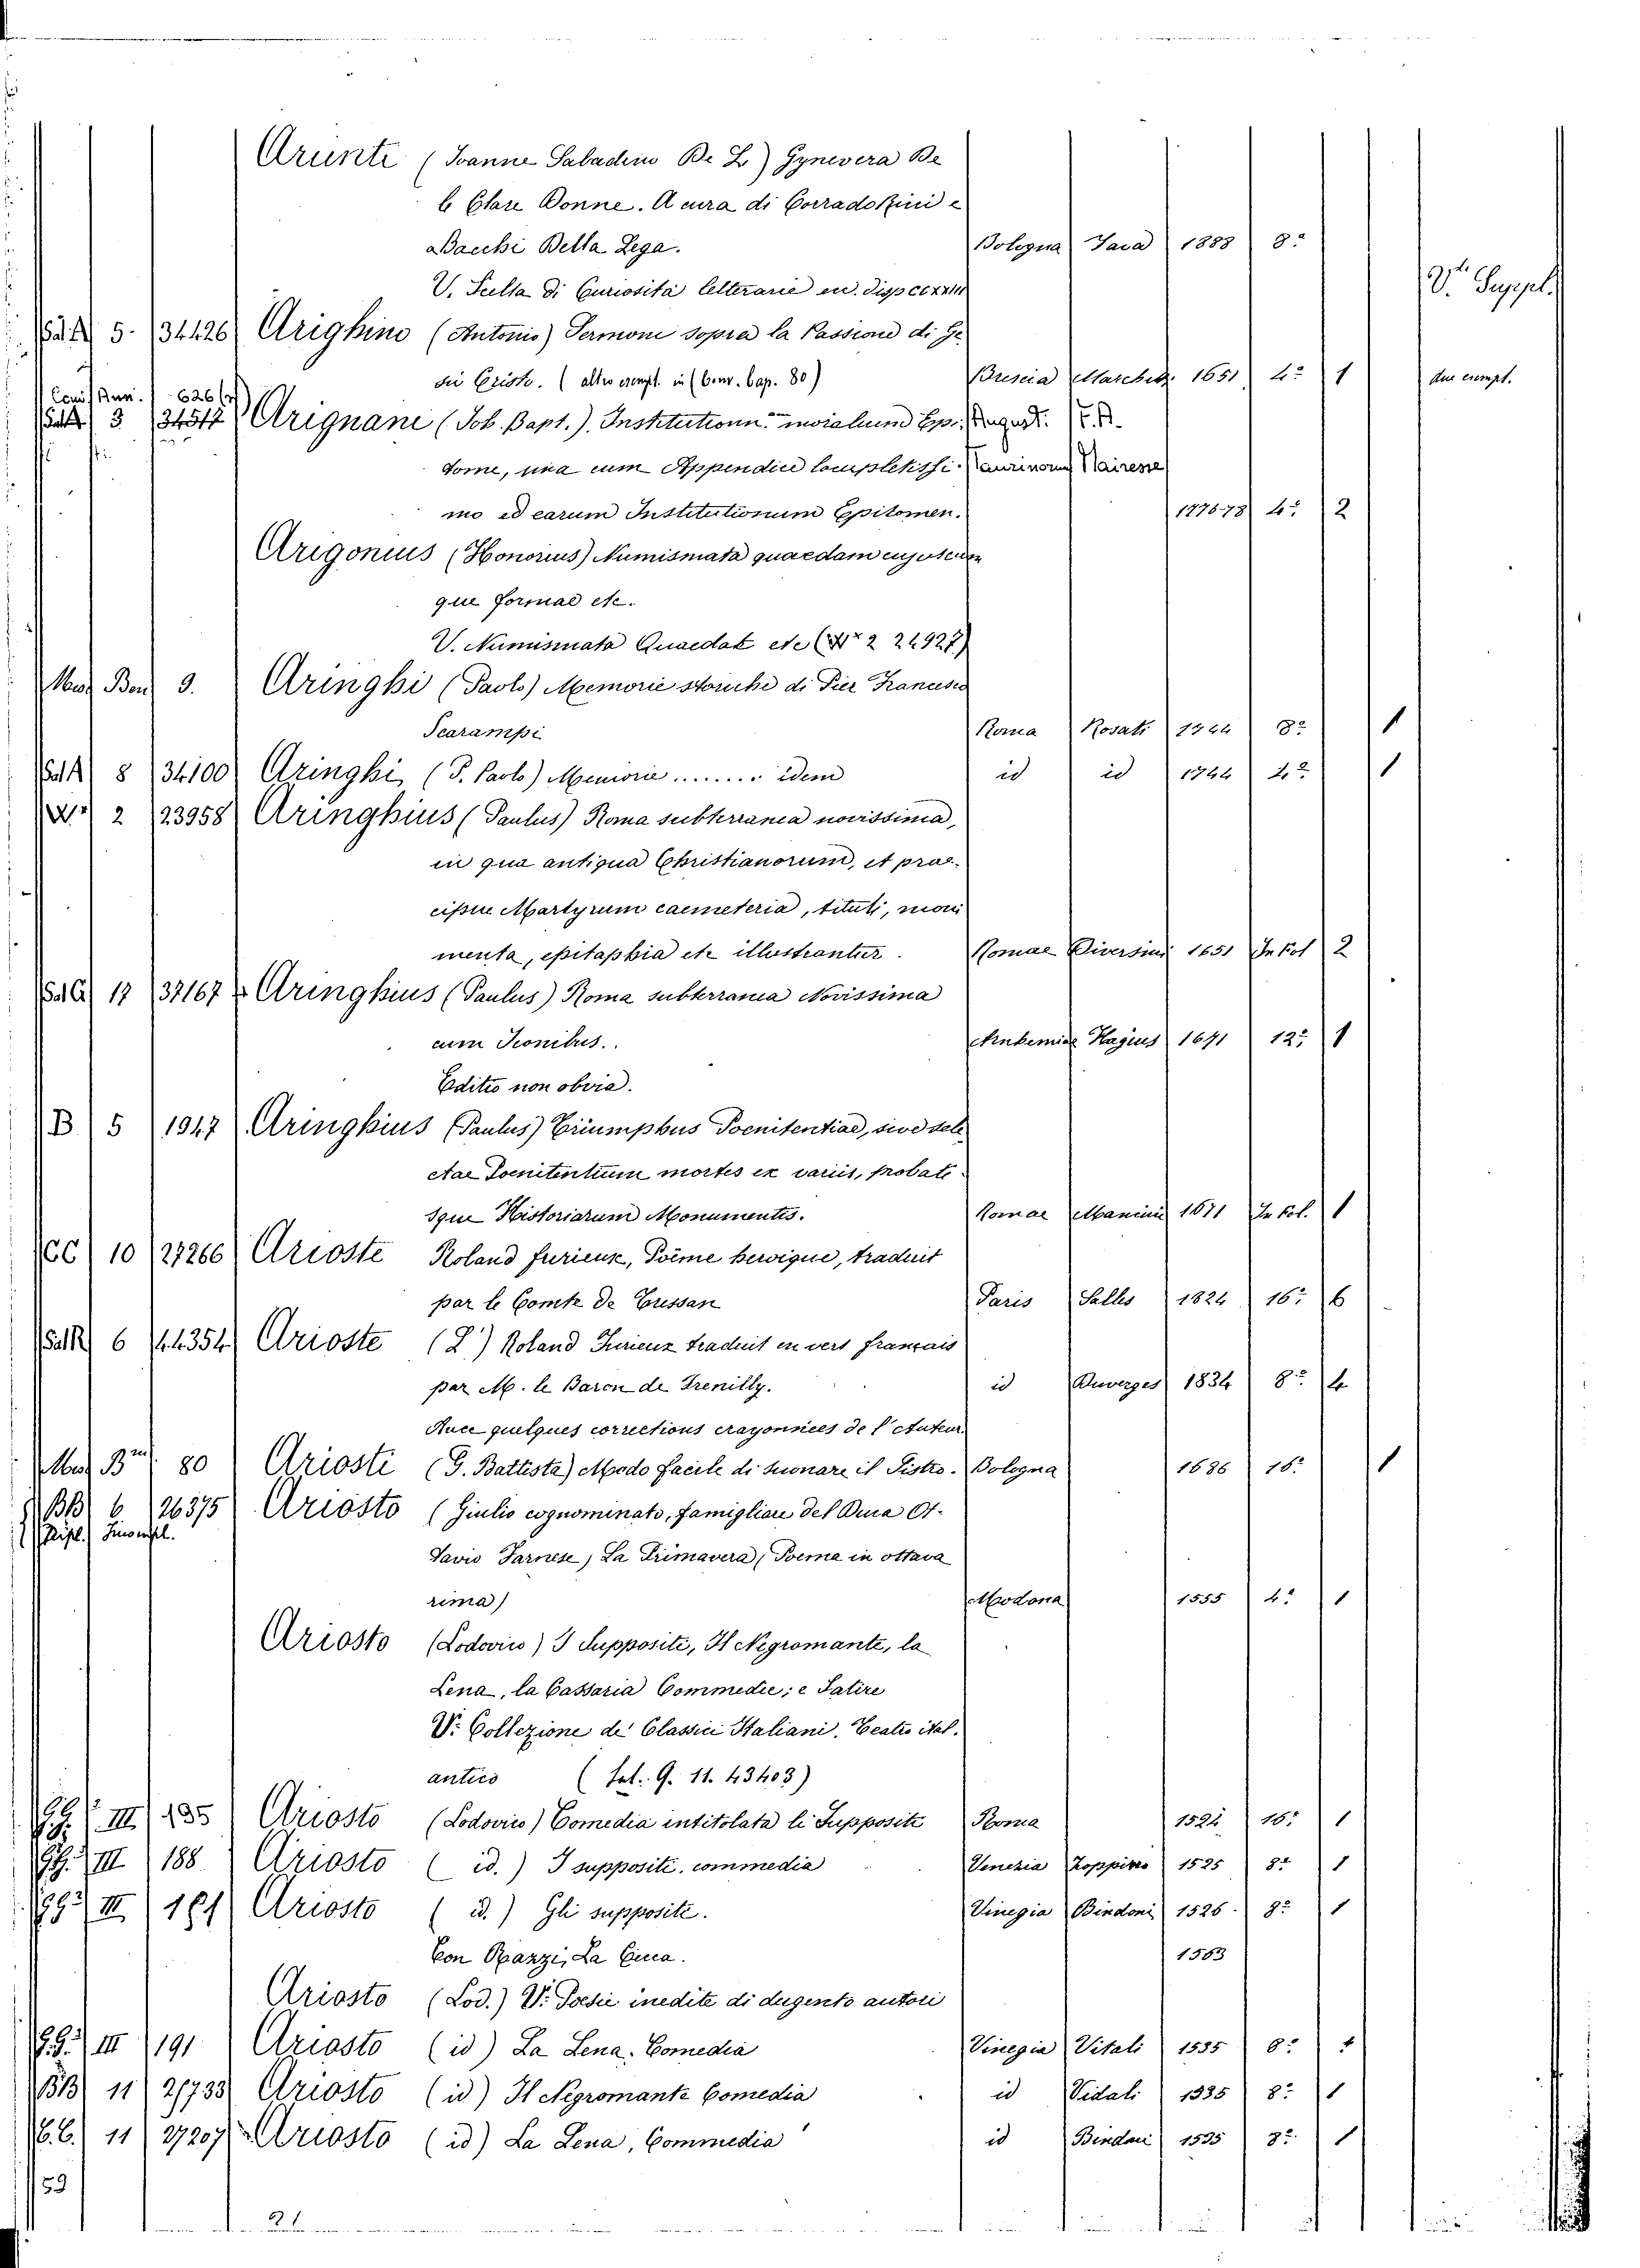 Arienti (Joanne Sabadino De L) Gynevera De
le Clare Donne. A cura di Corrado Ricci e
a Bacchi Della Lega. Bologna 1888 8º
V. Scelta di Curiosità letterarie
V. Suppl.
Sal. A 5. 34426 Arighino (Antonio) Sermoni sopra la Passione di Ge
sù Cristo. (altro esempl. in (Conv. Cap. 80) Brescia 1651 4º 1 due esempl.
626
3 Arignani (Joh. Bapt.) Institutionum
tome, una cum Appendice completissi Taurinorum Mairesse
mo ad earum Institutionum Epitomen. 1776-78 4º 2
Arigonius (Honorius) Numismata quaedam cujuscum
que formae etc.
V. Numismata Quaedam etc (Wº 2 24927)
Mus Ben 9. Aringhi (Paolo) Memorie storiche di Pier Francesco
Scarampi Roma Rosati 1744 8º 1
Sal A 8 34100 Aringhi (P. Paolo) Memorie ....... idem id id 1744 4º 1
Wº 2 23958 Aringhius (Paulus) Roma subterranea novissima,
in qua antiqua Christianorum, et prae-
cipue Martyrum caemeteria, tituli, moni
menta, epitaphia etc illustrantur. Romae Diversini 1651 In Fol 2
Sal G 17 37167 Aringhius (Paulus) Roma subterranea Novissima
cum Iconibus. Arnhemiae Hagius 1671 12º 1
Editio non obvia.
B 5 1947 Aringhius (Paulus) Triumphus Poenitentiae, sive sele
ctae Poenitentium mortes ex variis, probati
sque Historiarum Monumentis. Romae Manini 1671 In Fol. 1
CC 10 27266 Arioste Roland furieux, Poème heroique, traduit
par le Comte de Tressan Paris Salles 1824 16º 6
Sal R 6 44354 Arioste (L') Roland Furieux traduit en vers français
par M. le Baron de Frenilly. id Duverger 1834 8º 4
Avec quelques corrections crayonnées de l'Auteur.
Mus Bni 80 Ariosti (G. Battista) Modo facile di suonare il Sistro. Bologna 1686 16º 1
BB 6 26375 Ariosto (Giulio cognominato, famigliare del Duca Ot-
tavio Farnese) La Primavera (Poema in ottava
rima) Modona 1555 4º 1
Ariosto (Lodovico) I Suppositi, Il Negromante, la
Lena, la Cassaria Commedie; e Satire
V. Collezione de' Classici Italiani. Teatro ital.
antico (Sal. G. 11. 43403)
GG. III 195 Ariosto (Lodovico) Comedia intitolata li Suppositi Roma 1524 16º 1
GG. III 188 Ariosto (id.) I suppositi. commedia Venezia Zoppino 1525 8º 1
GG. III 181 Ariosto (id.) Gli suppositi. Vinegia Bindoni 1526 8º 1
Con Razzi, La Cecca. 1563
Ariosto (Lod.) V. Poesie inedite di dugento autori
GG. III 191 Ariosto (id) La Lena. Comedia Vinegia Vitali 1535 8º 1
BB 11 21733 Ariosto (id) Il Negromante Comedia id Vidali 1535 8º 1
C.C. 11 27207 Ariosto (id) La Lena, Commedia id Bindoni 1535 8º 1
59
21